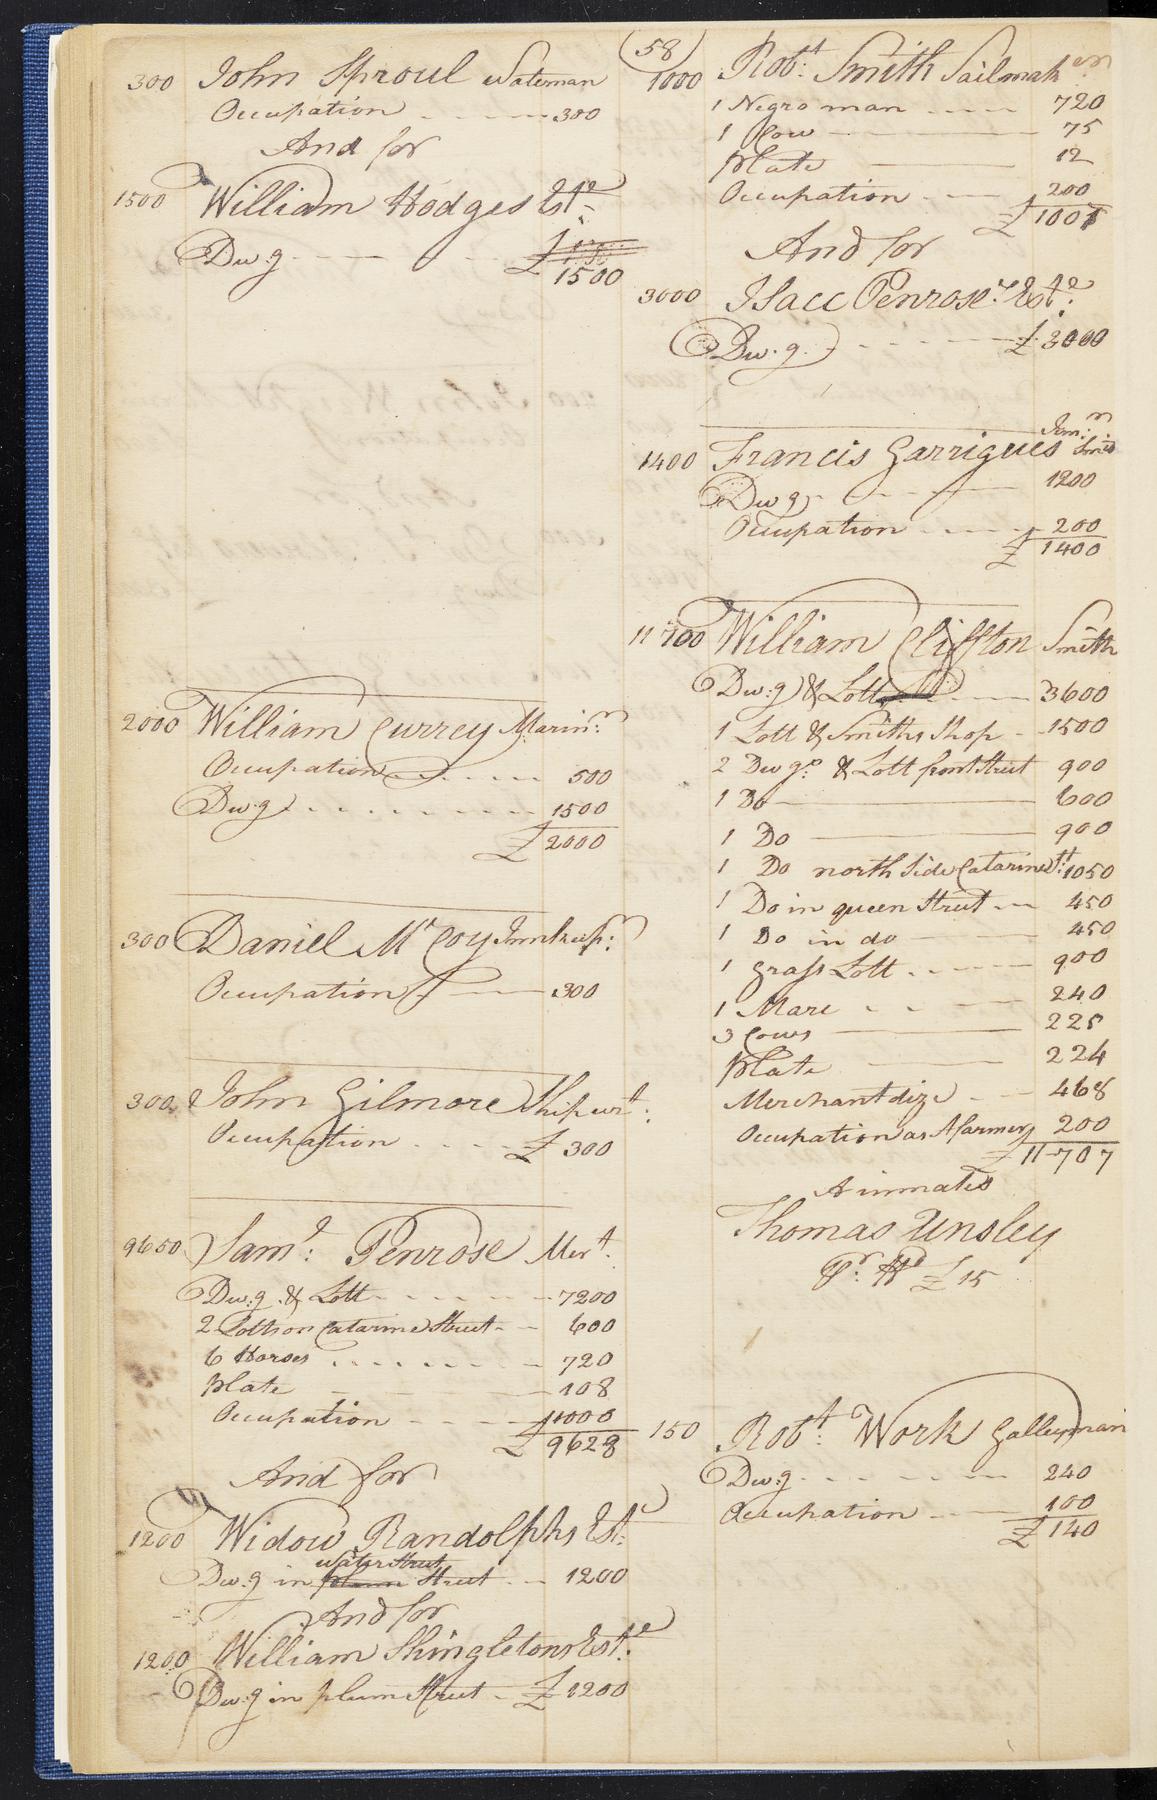 (58)
300 John Sproul Waterman
Occupation 300
And for
1500 William Hodges Este
Dw:g
£ 1500
2000 William Currey Marinr
Occupation 500
Dw:g 1500
£ 2000
300 Daniel Mc Coy Innkeepr
Occupation 300
300 John Gilmore Shipwrt:
Occupation £ 300
9650 Saml: Penrose Mert.
Dw:g & Lott 7200
2 Lotts on Catarine Street 600
6 Horses 720
plate 108
Occupation 1000
£ 9628
And for
1200 Widow Randolphs Este
water Street
Dw:g in Street 1200
And for
1200 William Shingletons Este:
Dw:g in plum Street £ 1200
1000 Robt: Smith Sailmaker
1 Negro man 720
1 Cow 75
plate 12
Occupation 200
£ 1007
And for
3000 Isacc Penroses Este:
Dw:g £ 3000
1400 Francis Garrigues
Dw:g 1200
Occupation 200
£ 1400
11700 William Cliffton Smith
Dw:g & Lott 3600
1 Lott & Smiths Shop 1500
2 Dwgs & Lott front Street 900
1 Do 600
1 Do 900
1 Do north Side Catarine St: 1050
1 Do in queen Street 450
1 Do in do 450
1 grass Lott 900
1 Mare 240
3 Cows 225
plate 224
Merchantdize 468
Occupation as A farmer 200
£ 11707
A inmates
Thomas Unsley
Pr. Hd £ 15
150 Robt: Work Galleyman
Dw:g 240
Occupation 100
£ 140